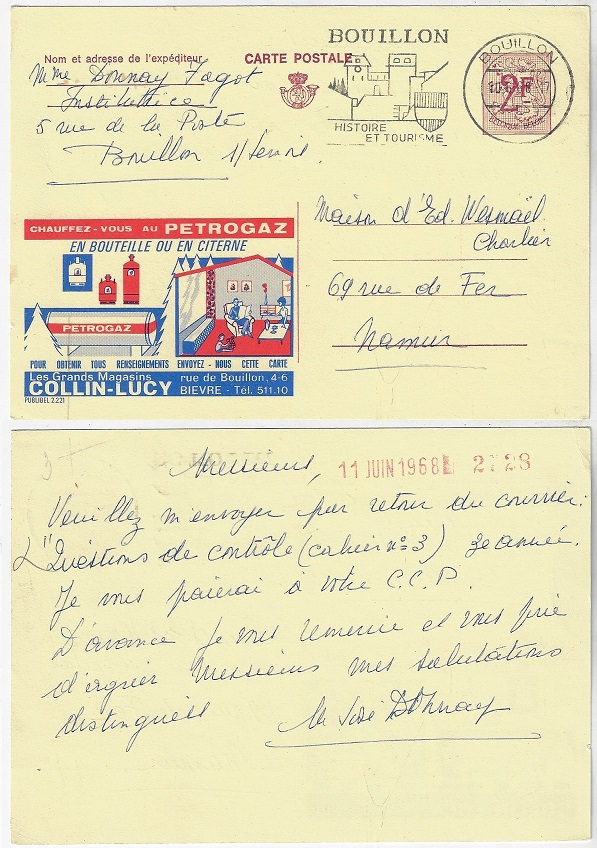 BOUILLON
Nom et adresse de l'expéditeur
CARTE POSTALE
Mme Donnay Fagot
Institutrice
5 rue de la Poste
Bouillon s/Semois
HISTOIRE
ET TOURISME
BOUILLON
2F
Maison d'Ed. Wesmael
Charlier
69 rue de Fer
Namur
CHAUFFEZ-VOUS AU PETROGAZ
EN BOUTEILLE OU EN CITERNE
PETROGAZ
POUR OBTENIR TOUS RENSEIGNEMENTS ENVOYEZ-NOUS CETTE CARTE
Les Grands Magasins
COLLIN-LUCY
rue de Bouillon, 4-6
BIEVRE - Tél. 511.10
PUBLIBEL 2221
Messieurs,
11 JUIN 1968 2728
Veuillez m'envoyer par retour du courrier:
"Questions de contrôle (cahier n° 3) 3e année.
Je vous paierai à votre C.C.P.
D'avance je vous remercie et vous prie
d'agréer Messieurs mes salutations
distinguées